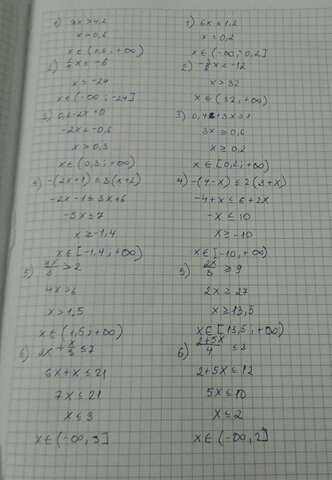 1) 7x > 4,2
x > 0,6
x ∈ (0,6; +∞)
2) x ≤ -6
x ≤ -24
x ∈ (-∞; -24]
3) 0,6-2x < 0
-2x < -0,6
x > 0,3
x ∈ (0,3; +∞)
4) -(2x+1) ≤ 3(x+2)
-2x-1 ≤ 3x+6
-5x ≤ 7
x ≥ -1,4
x ∈ [-1,4; +∞)
5) > 2
4x > 6
x > 1,5
x ∈ (1,5; +∞)
6) 2x + x/3 ≤ 7
6x+x ≤ 21
7x ≤ 21
x ≤ 3
x ∈ (-∞; 3]
1) 6x ≤ 1,2
x ≤ 0,2
x ∈ (-∞; 0,2]
2) x < -12
x > 32
x ∈ (32; +∞)
3x ≥ 0,6
x ≥ 0,2
x ∈ [0,2; +∞)
4) -(4-x) ≤ 2(3+x)
-4+x ≤ 6+2x
-x ≤ 10
x ≥ -10
x ∈ [-10; +∞)
5) 2x/3 ≥ 9
2x ≥ 27
x ≥ 13,5
x ∈ [13,5; +∞)
6) 2+5x/4 ≤ 3
2+5x ≤ 12
5x ≤ 10
x ≤ 2
x ∈ (-∞; 2]